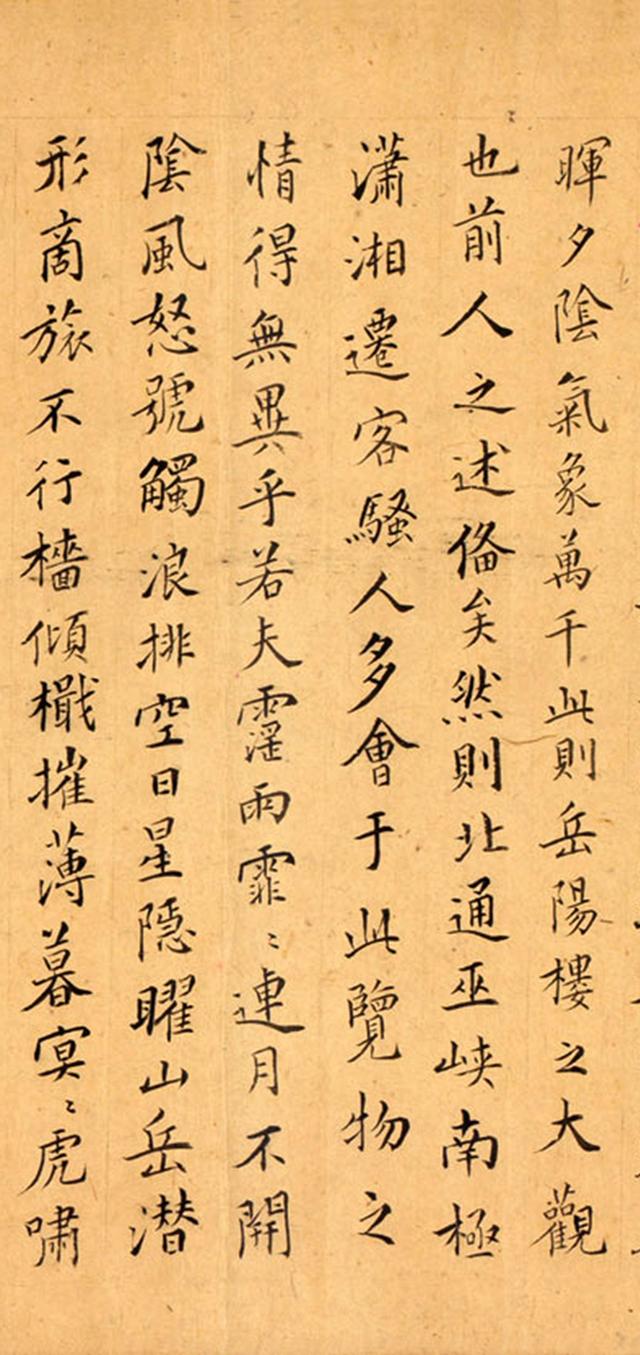 暉夕陰氣象萬千此則岳陽樓之大觀
也前人之述俻矣然則北通巫峡南極
瀟湘遷客騷人多會于此覽物之
情得無異乎若夫霪雨霏〻連月不開
陰風怒號觸浪排空日星隱曜山岳潜
形商旅不行檣傾檝摧薄暮冥〻虎嘯